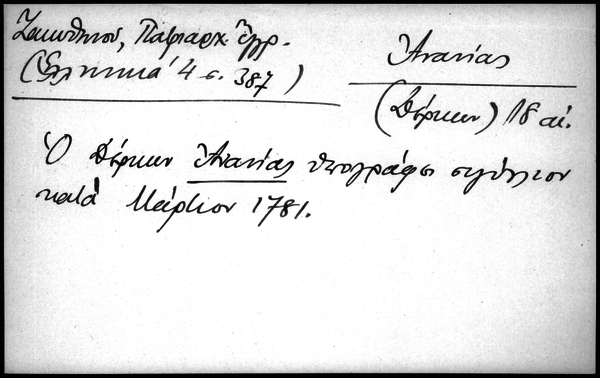 Ζακυθηνού, Πατριαρχ. Ἔγγρ.
(Ἑλληνικά 4 σ. 387)
Ἀνανίας
(Δέρκων) 18 αἰ.
Ὁ Δέρκων Ἀνανίας ὑπογράφει σιγίλλιον
κατὰ Μάρτιον 1781.